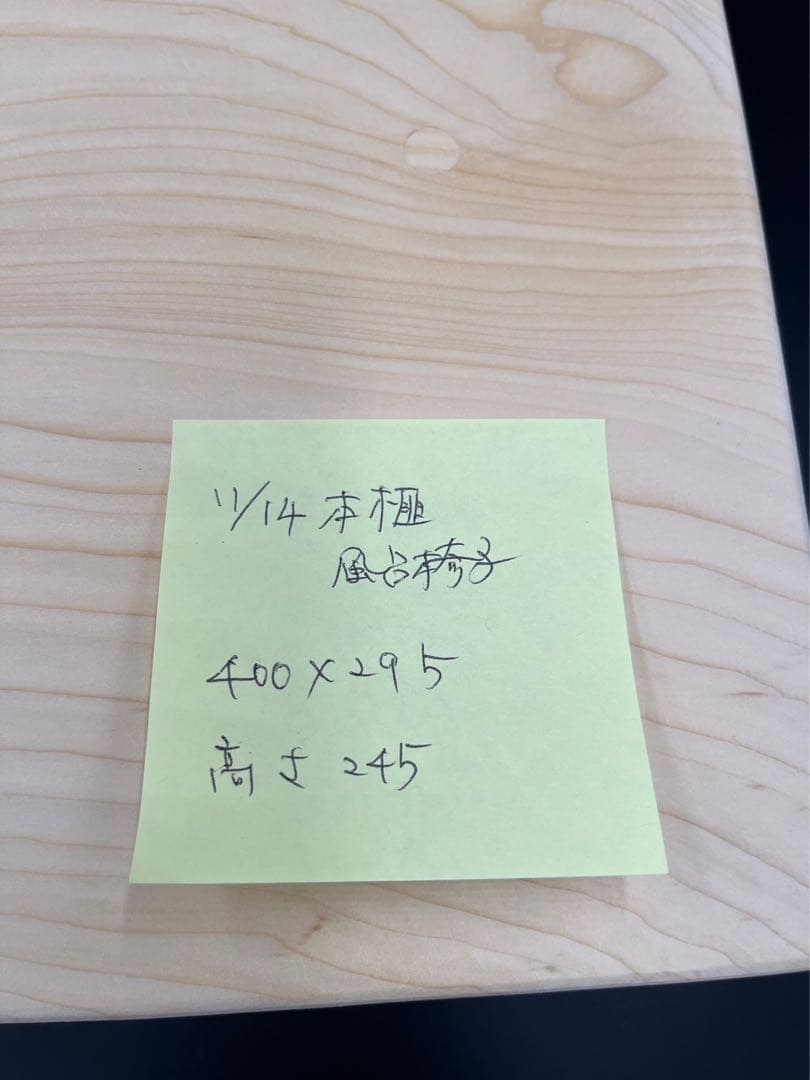 11/14 本榧
風呂椅子
400×295
高さ 245